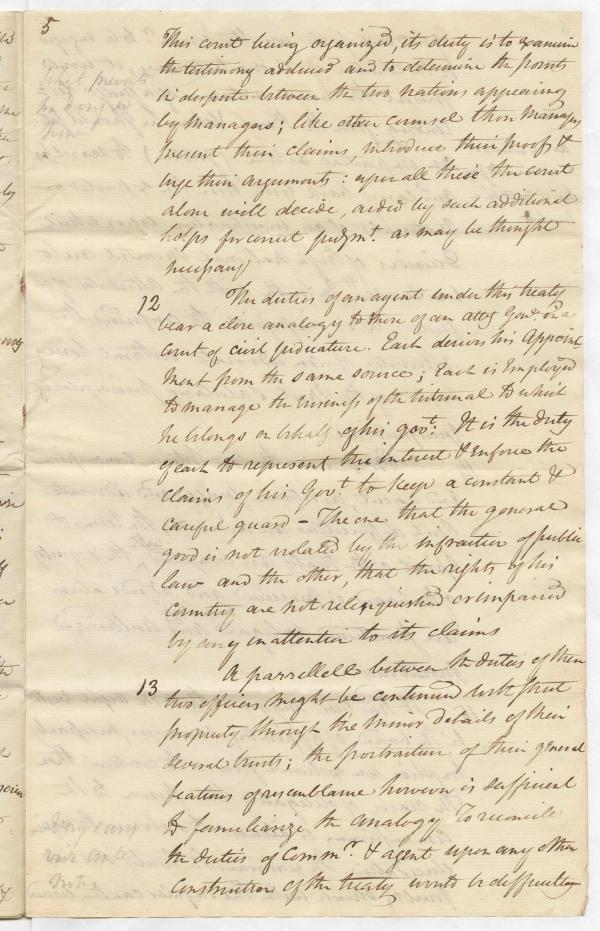 5
This court being organized, its duty is to examine
the testimony adduced and to determine the points
in dispute between the two nations appearing
by managers; like other counsel these managers
present their claims, introduce their proofs &
urge their arguments: upon all these the court
alone will decide, aided by such additional
helps for correct judgmt. as may be thought
necessary
12 The duties of an agent under this treaty
bear a close analogy to those of an atty Genl. in a
court of civil judicature. Each derives his appoint
ment from the same source; Each is Employed
to manage the business of the tribunal to which
he belongs on behalf of his govt. It is the duty
of each to represent the interest & enforce the
claims of his Govt. to keep a constant &
careful guard – The one that the general
good is not violated by the infraction of public
law and the other, that the rights of his
country are not relinquished or impaired
by any inattention to its claims
13 A parrellell between the duties of these
two officers might be continued with strict
propriety through the minor details of their
several trusts; the portraiture of their general
features of resemblance however is sufficient
to familiarize the analogy To reconcile
the duties of Commr. & agent upon any other
construction of the treaty would be difficulty